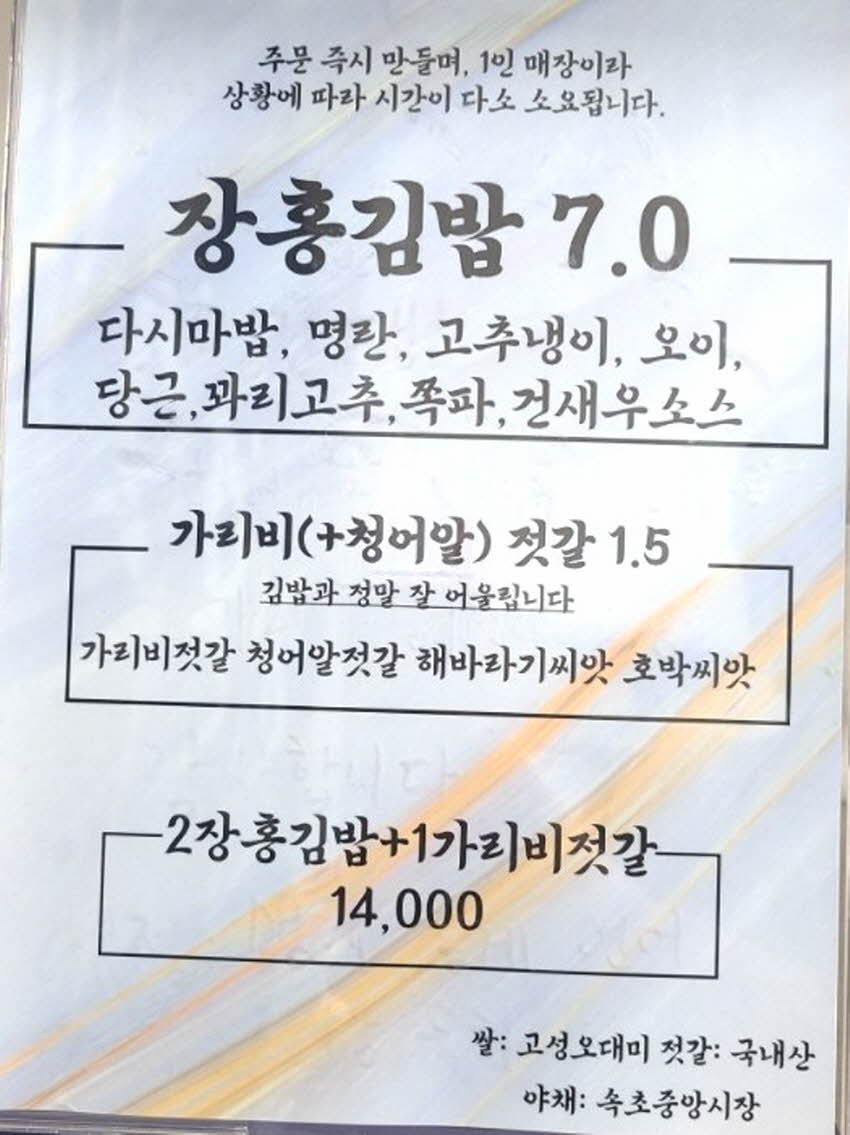 주문 즉시 만들며, 1인 매장이라
상황에 따라 시간이 다소 소요됩니다.
장홍김밥 7.0
다시마밥, 명란, 고추냉이, 오이,
당근,꽈리고추,쪽파,건새우소스
가리비(+청어알) 젓갈 1.5
김밥과 정말 잘 어울립니다
가리비젓갈 청어알젓갈 해바라기씨앗 호박씨앗
2장홍김밥+1가리비젓갈
14,000
쌀: 고성오대미 젓갈: 국내산
야채: 속초중앙시장